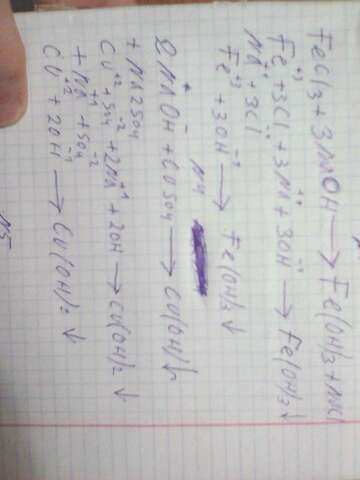 FeCl3 + 3NaOH → Fe(OH)3 + NaCl
Fe+3 + 3Cl-1 + 3Na+1 + 3OH-1 → Fe(OH)3↓
Na+1 + 3Cl-1
Fe+3 + 3OH-1 → Fe(OH)3↓
N4
2NaOH + CuSO4 → Cu(OH)↓
+ Na2SO4
Cu+2 + SO4-2 + 2Na+1 + 2OH → Cu(OH)2↓
+ Na+1 + SO4-2
Cu+2 + 2OH-1 → Cu(OH)2↓
N5